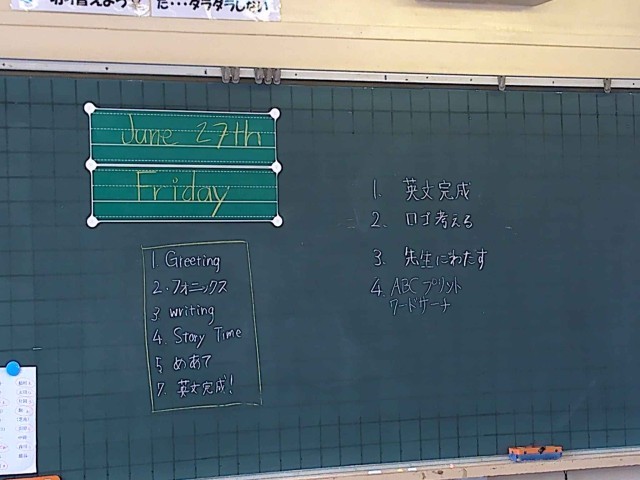 た・・・ダラダラしない
June 27th
Friday
1 Greeting
2. フォニックス
3 writing
4. Story Time
5 めあて
7. 英文完成!
1. 英文完成
2. ロゴ考える
3. 先生にわたす
4. ABCプリント
ワードサーチ